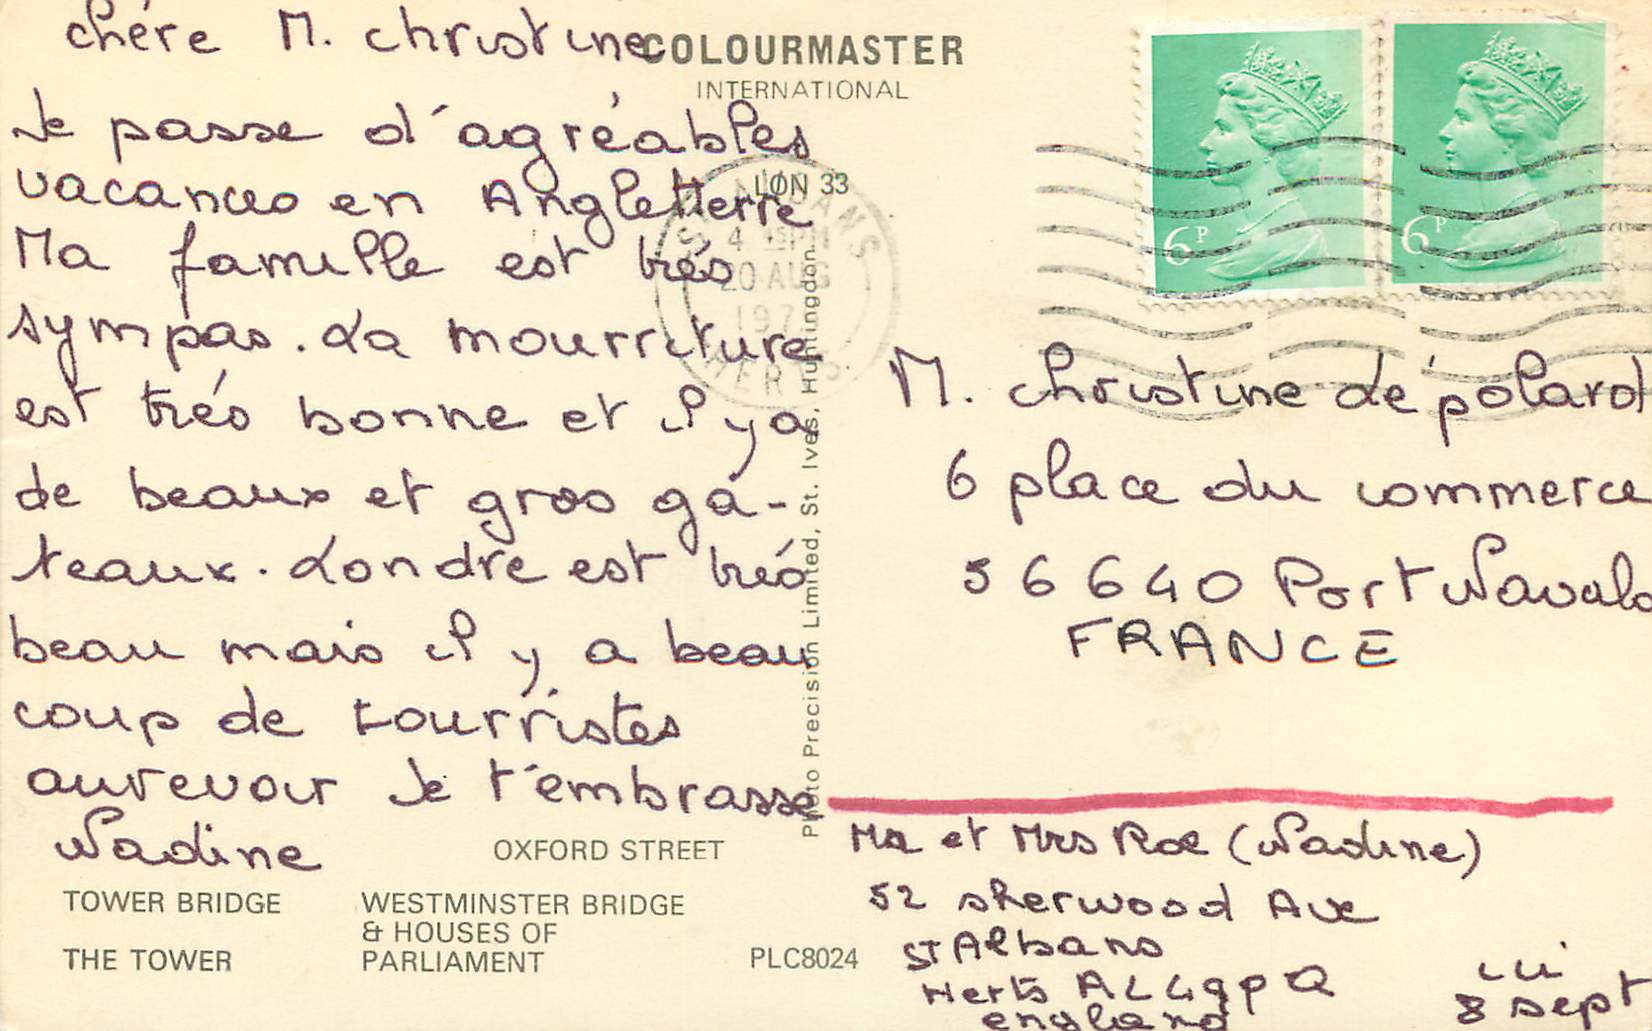 chère M. christine
COLOURMASTER
INTERNATIONAL
Je passe d'agréables
vacances en Angletterre
Ma famille est trés
sympas. La mourriture
est trés bonne et il y a
de beaux et gros gâ-
teaux. Londre est trés
beau mais il y a beau
coup de tourristes
aurevoir Je t'embrasse
Nadine
OXFORD STREET
TOWER BRIDGE
WESTMINSTER BRIDGE
& HOUSES OF
THE TOWER
PARLIAMENT
PLC8024
Photo Precision Limited, St. Ives, Huntingdon.
LON 33
ST ALBANS
20 AUG
HERTS
6P
6P
M. christine Le polard
6 place du commerce
56640 Port Navalo
FRANCE
Mr et Mrs Roe (Nadine)
52 sherwood Ave
ST Albans
Herts AL4 9PQ
england
8 sept